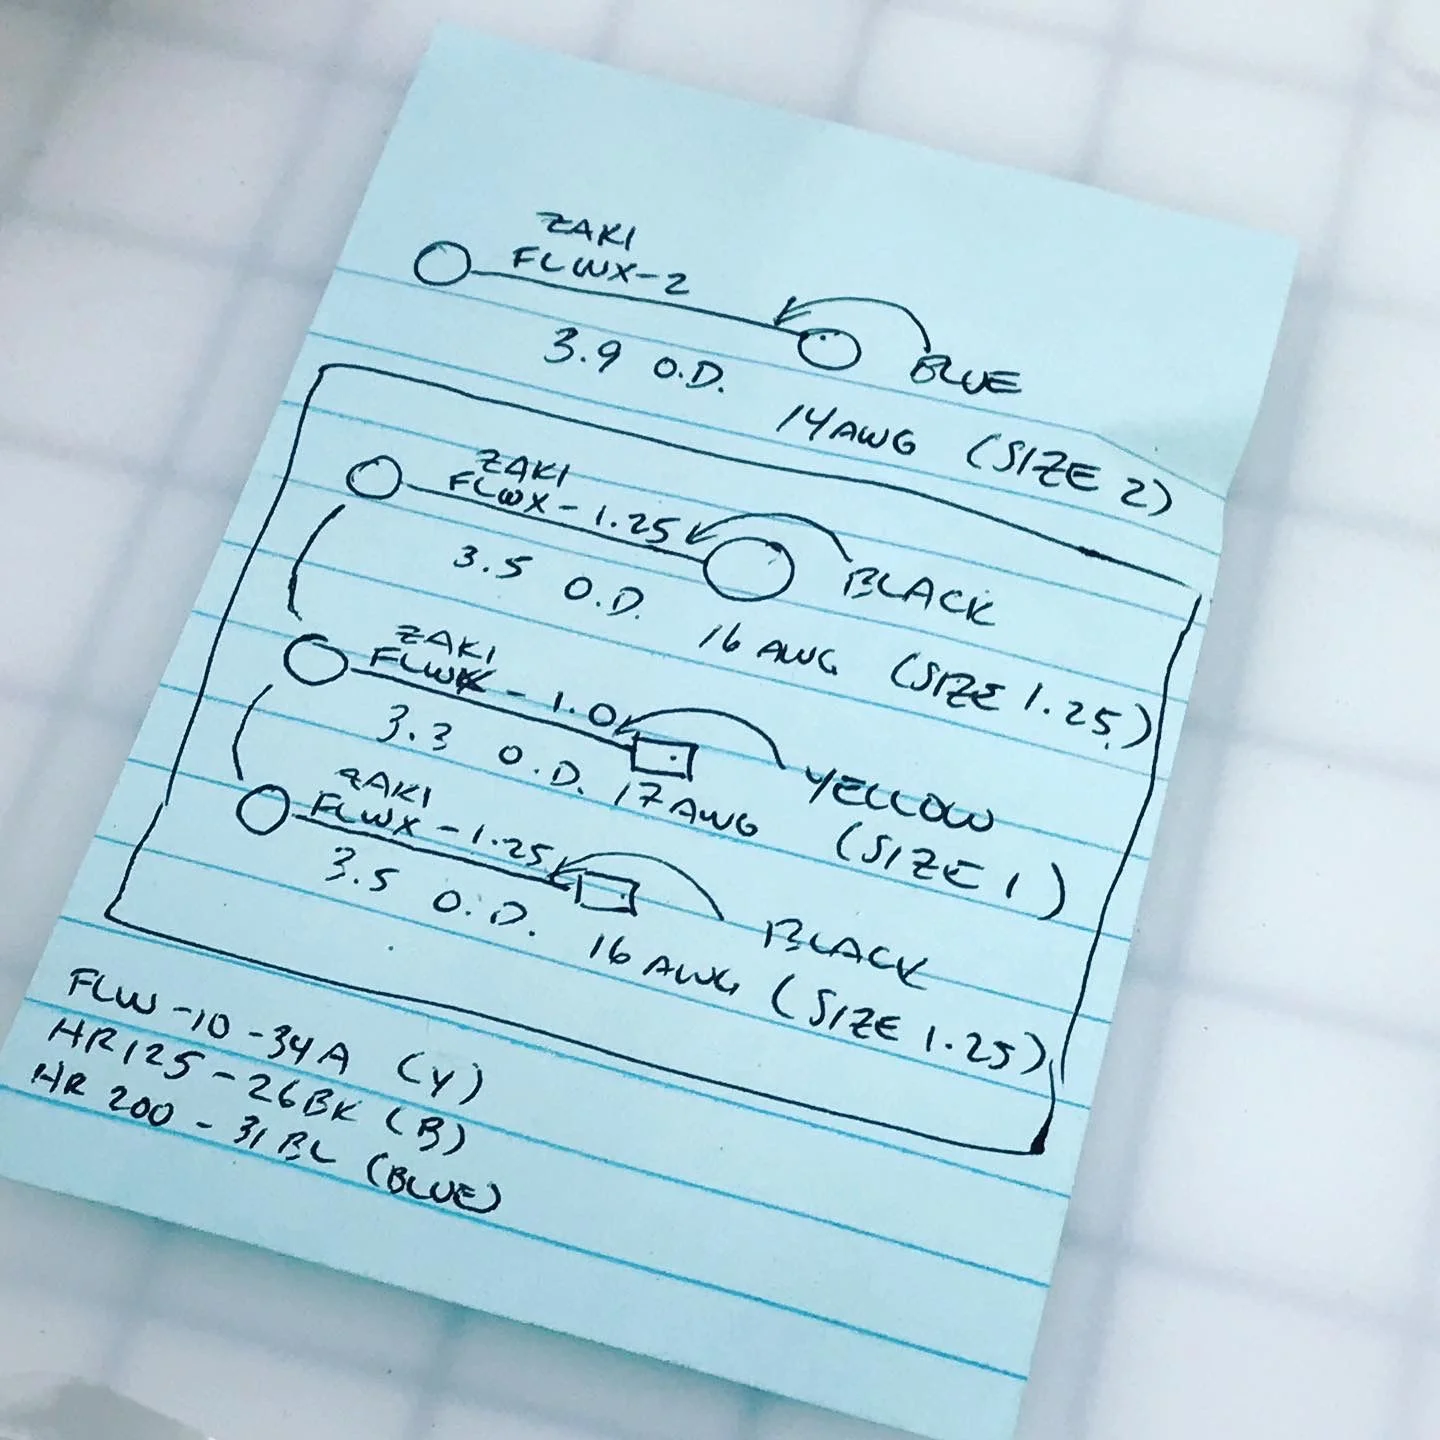 ZAKI
FLWX-2
BLUE
3.9 O.D.
14AWG (SIZE 2)
ZAKI
FLWX-1.25
BLACK
3.5 O.D.
16 AWG (SIZE 1.25)
ZAKI
FLWX-1.0
YELLOW
3.3 O.D. 17AWG (SIZE 1)
ZAKI
FLWX-1.25
BLACK
3.5 O.D. 16 AWG (SIZE 1.25)
FLW-10-34A (Y)
HR125-26BK (B)
HR 200-31BL (BLUE)